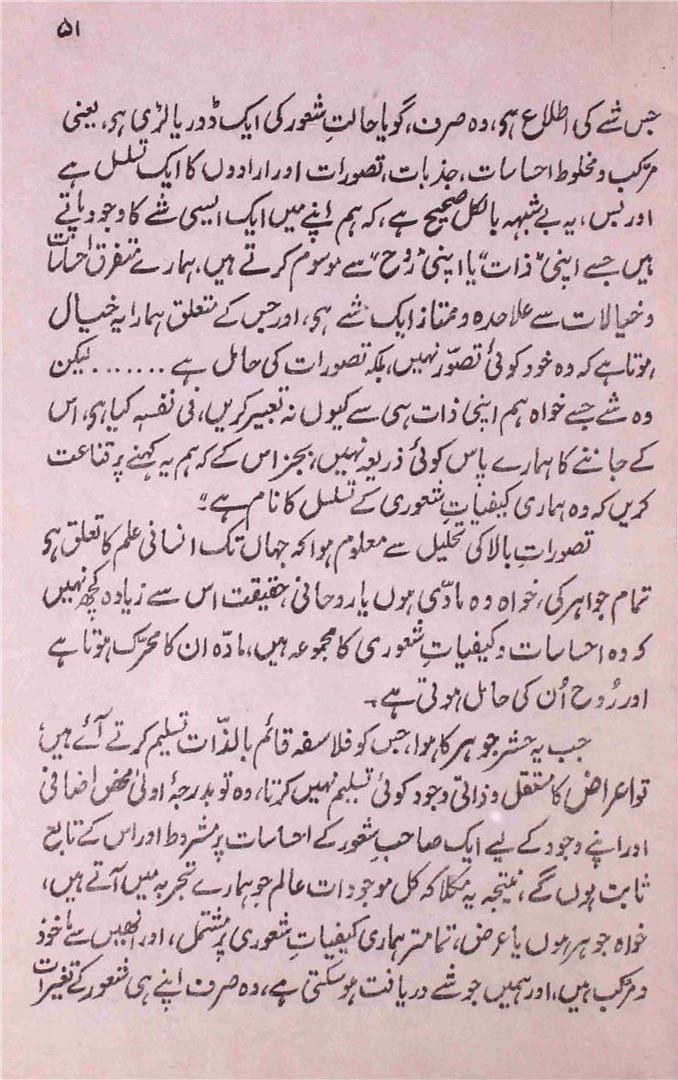 ۵۱
جس شے کی اطلاع ہو، وہ صرف، گویا حالتِ شعور کی ایک ڈور یا لڑی ہو، یعنی
مرکب و مخلوط احساسات، جذبات، تصورات اور ارادوں کا ایک تسلسل ہے
اور بس، یہ بے شبہہ بالکل صحیح ہے، کہ ہم اپنے میں ایک ایسی شے کا وجود پاتے
ہیں جسے اپنی ”ذات“ یا اپنی ”رُوح“ سے موسوم کرتے ہیں، ہمارے متفرق احساسات
و خیالات سے علاحدہ و ممتاز ایک شے ہو، اور جس کے متعلق ہمارا یہ خیال
ہوتا ہے کہ وہ خود کوئی تصوّر نہیں، بلکہ تصورات کی حامل ہے ....... لیکن
وہ شے جسے خواہ ہم اپنی ذات ہی سے کیوں نہ تعبیر کریں، فی نفسہٖ کیا ہو، اس
کے جاننے کا ہمارے پاس کوئی ذریعہ نہیں، بجز اس کے کہ ہم یہ کہنے پر قناعت
کریں کہ وہ ہماری کیفیاتِ شعوری کے تسلسل کا نام ہے۔“
تصوراتِ بالا کی تحلیل سے معلوم ہوا کہ جہاں تک انسانی علم کا تعلق ہو
تمام جواہر کی، خواہ وہ مادّی ہوں یا روحانی، حقیقت اس سے زیادہ کچھ نہیں
کہ وہ احساسات و کیفیاتِ شعوری کا مجموعہ ہیں، مادّہ ان کا محرّک ہوتا ہے
اور رُوح اُن کی حامل ہوتی ہے۔
جب یہ حشر جوہر کا ہوا، جس کو فلاسفہ قائم بالذّات تسلیم کرتے آئے ہیں،
تو اعراض کا مستقل و ذاتی وجود کوئی تسلیم نہیں کرتا، وہ تو بدرجۂ اولیٰ محض اضافی
اور اپنے وجود کے لیے ایک صاحبِ شعور کے احساسات پر مشروط اور اس کے تابع
ثابت ہوں گے، نتیجہ یہ نکلا کہ کل موجودات عالم جو ہمارے تجربہ میں آتے ہیں،
خواہ جوہر ہوں یا عرض، تمامتر ہماری کیفیاتِ شعوری پر مشتمل، اور انھیں سے ماخوذ
و مرکب ہیں، اور ہمیں جو شے دریافت ہو سکتی ہے، وہ صرف اپنے ہی شعور کے تغیرات